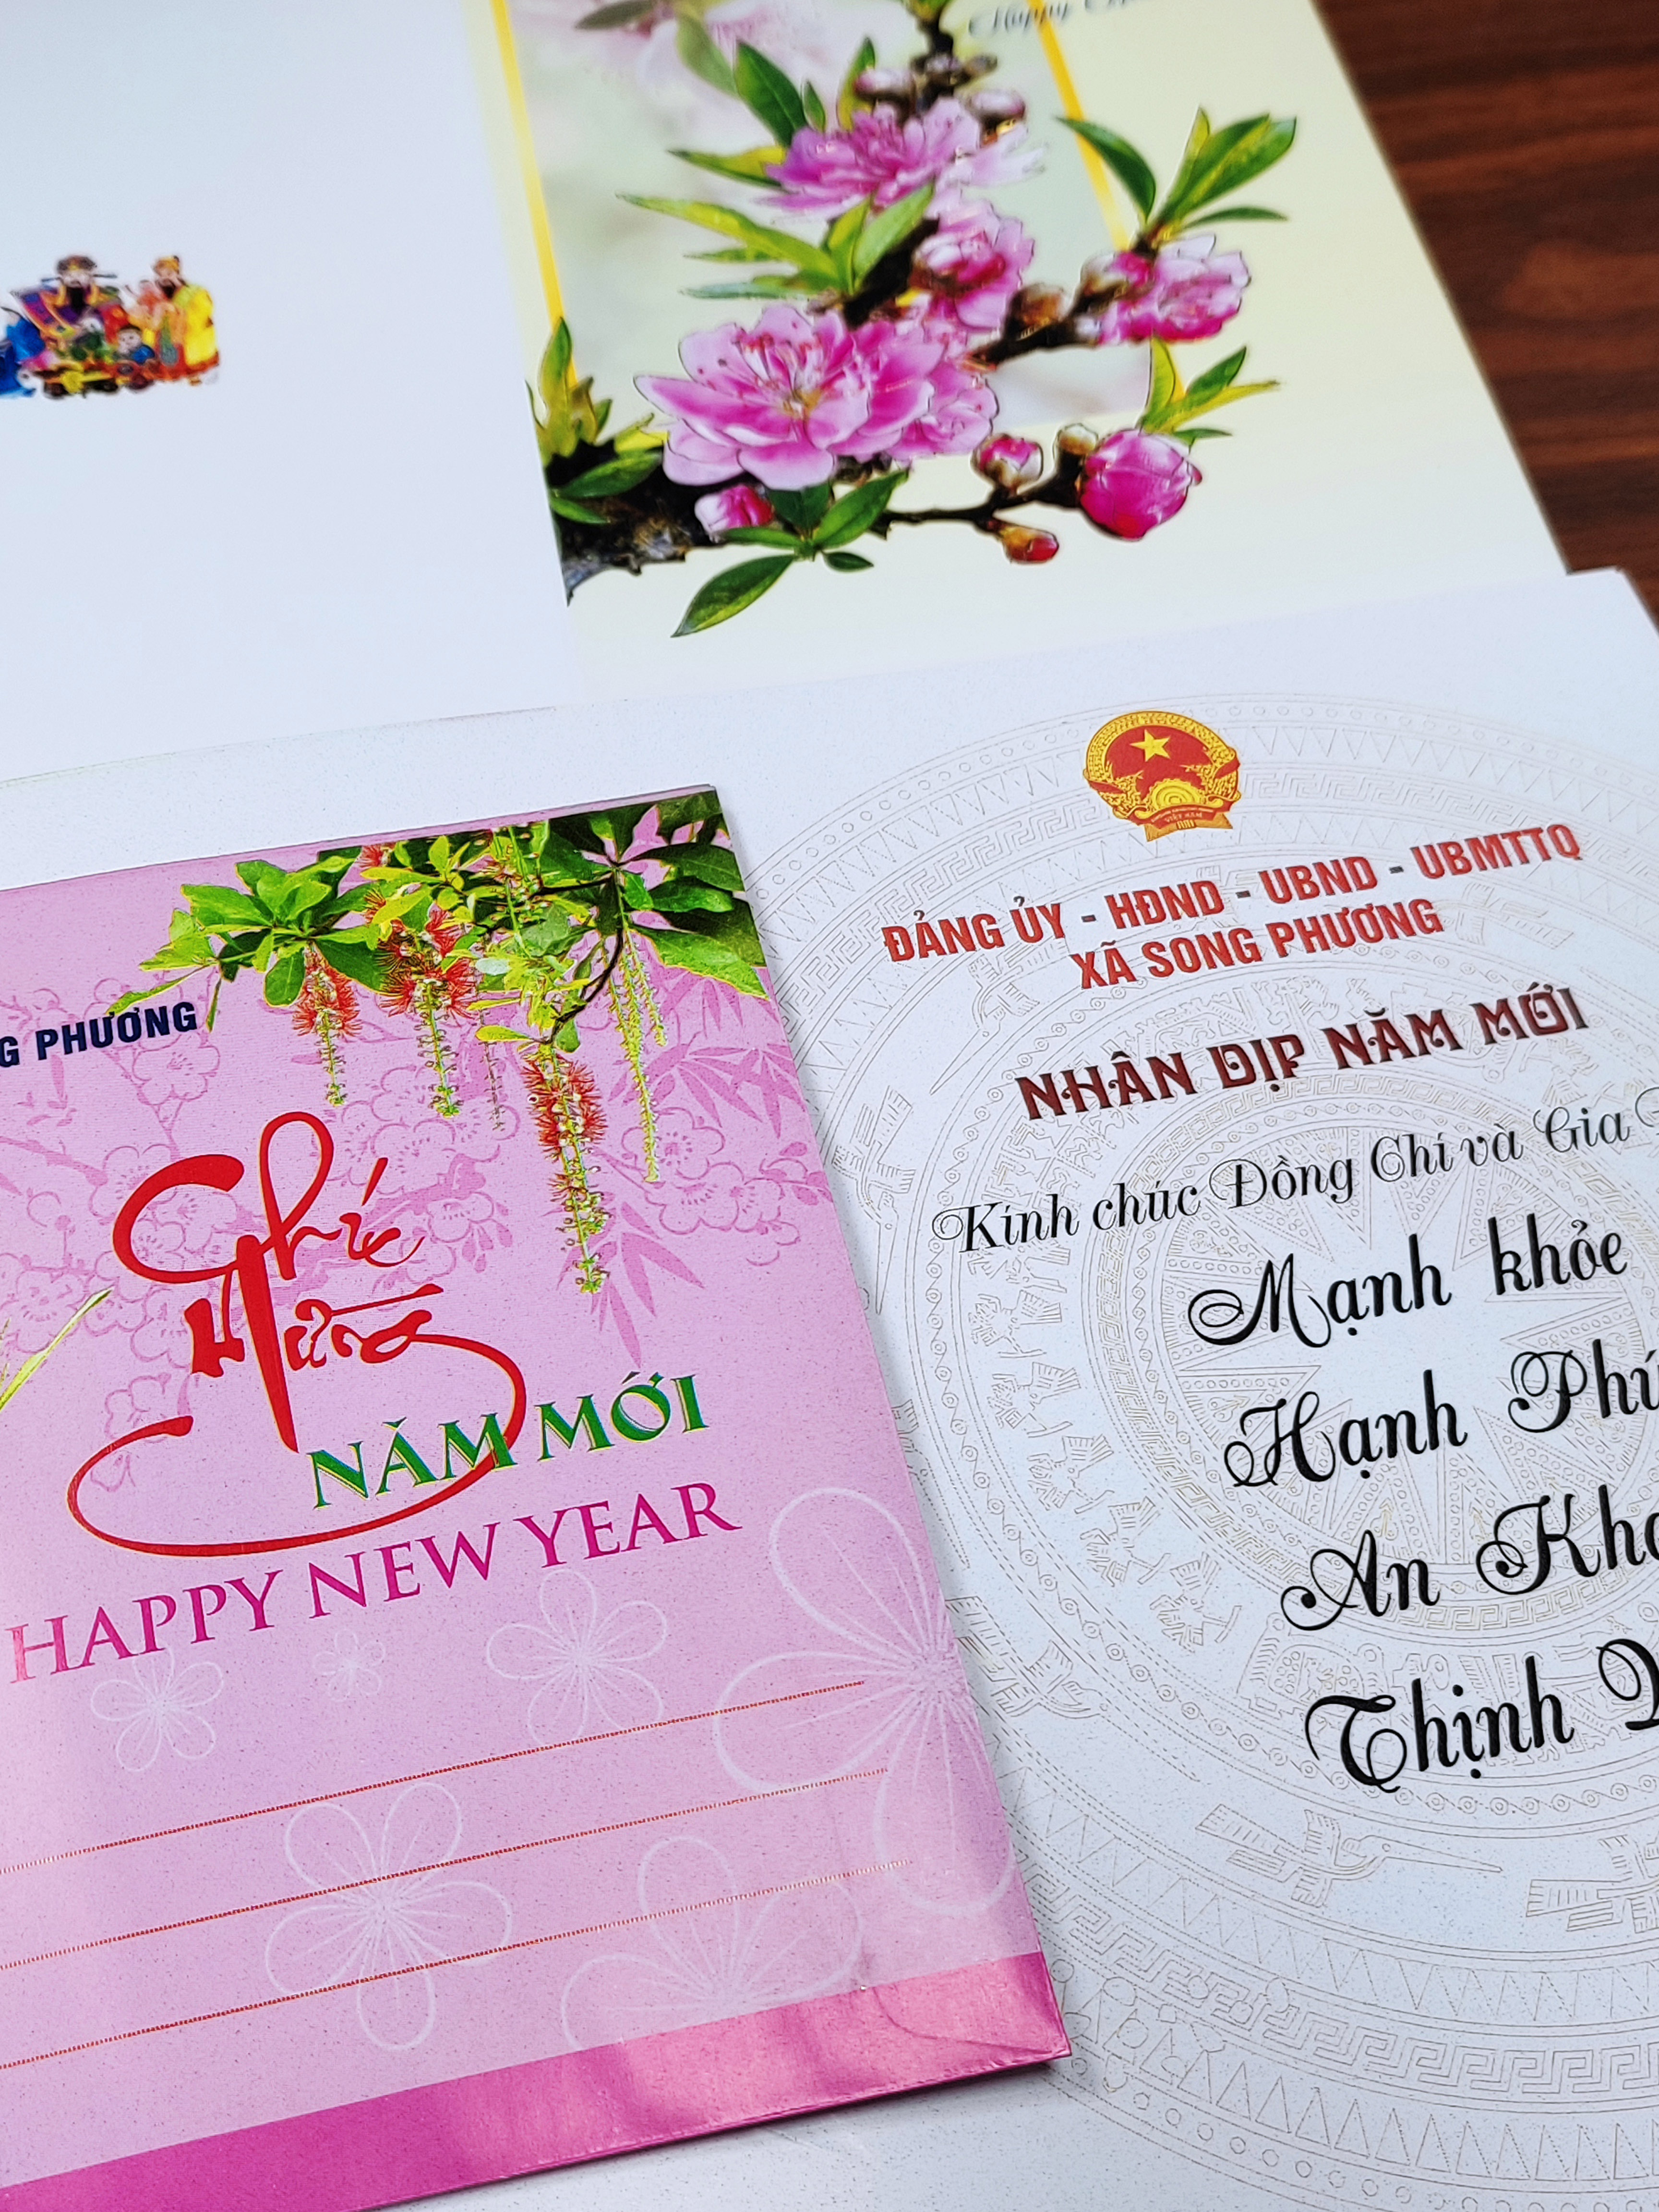 Happy
G PHƯƠNG
Chúc
Mừng
NĂM MỚI
HAPPY NEW YEAR
VIỆT NAM
ĐẢNG ỦY - HĐND - UBND - UBMTTQ
XÃ SONG PHƯƠNG
NHÂN DỊP NĂM MỚI
Kính chúc Đồng Chí và Gia
Mạnh khỏe
Hạnh Phú
An Kha
Thịnh